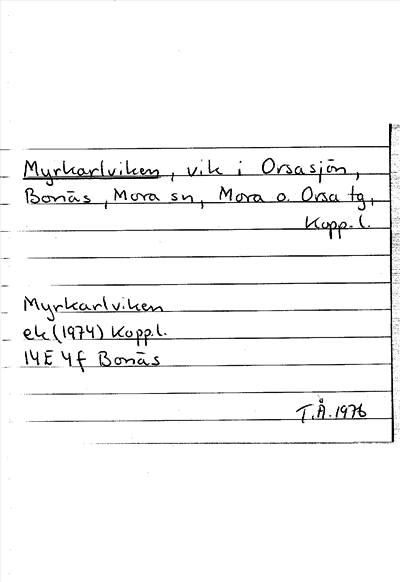 Myrkarlviken, vik i Orsasjön,
Bonäs, Mora sn, Mora o. Orsa tg,
Kopp. l.
Myrkarlviken
ek (1974) Kopp. l.
14E 4f Bonäs
T.Å. 1976